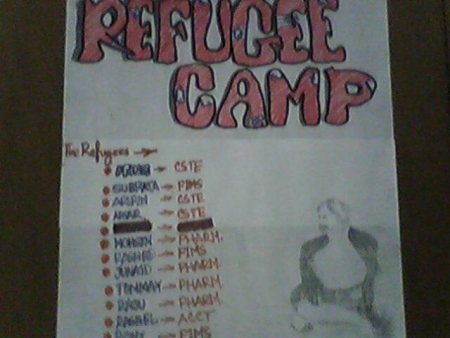 REFUGEE
CAMP
The Refugees →
→ CSTE
SUBRATA → FIMS
→ CSTE
→ CSTE
MOHSIN → PHARM.
RASHED → FIMS
JUNAID → PHARM.
TONMAY → PHARM.
RAJU → PHARM.
RASHEL → ACCT
→ FIMS